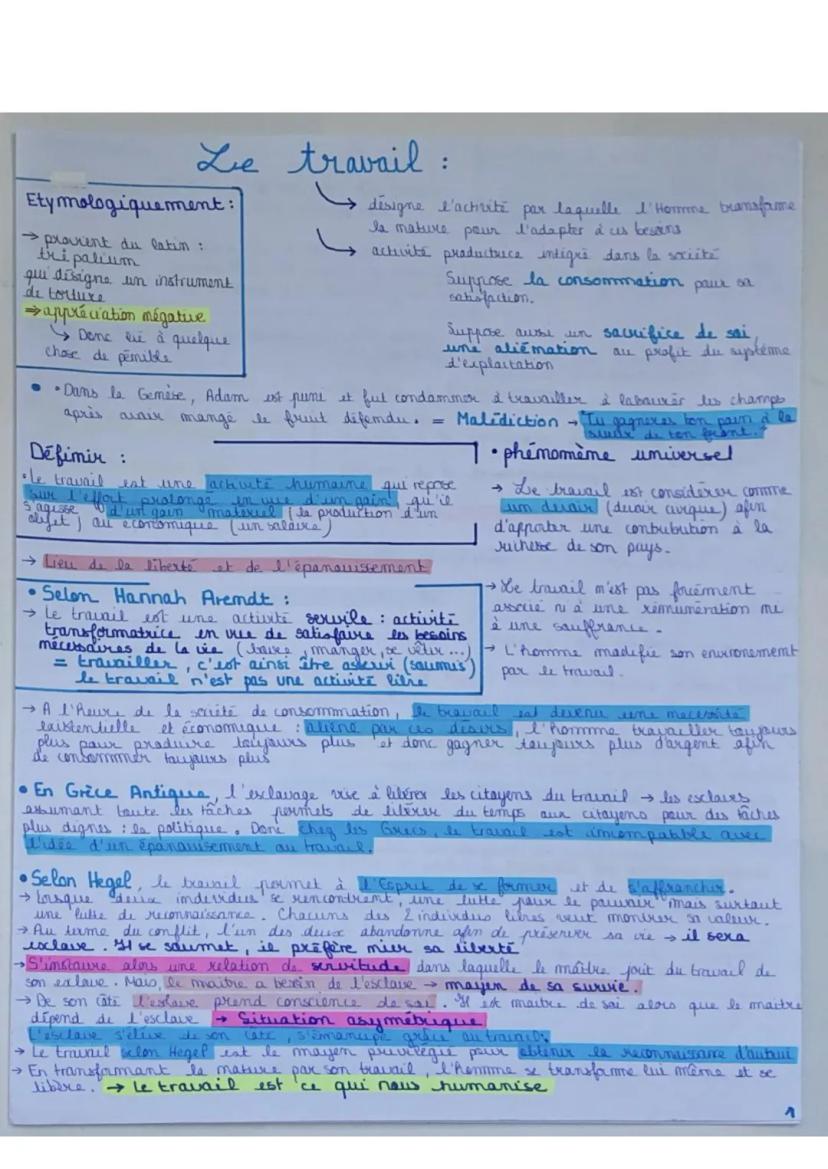 Le travail :
Etymologiquement :
→ provient du latin :
tripalium
qui désigne un instrument
de torture
⇒ appréciation négative
↳ Donc lié à quelque
chose de pénible
↳ désigne l'activité par laquelle l'Homme transforme
la nature pour l'adapter à ces besoins
↳ activité productrice intégré dans la société
Suppose la consommation pour sa
satisfaction.
Suppose aussi un sacrifice de soi,
une aliénation au profit du système
d'exploitation
• • Dans la Genèse, Adam est puni et fut condamner à travailler à labourer les champs
après avoir mangé le fruit défendu. = Malédiction → "Tu gagneras ton pain à la
sueur de ton front."
Définir :
• Le travail est une activité humaine qui repose
sur l'effort prolongé en vue d'un gain, qu'il
s'agisse d'un gain matériel (la production d'un
objet) ou économique (un salaire)
→ Lieu de la liberté et de l'épanouissement
• phénomène universel
→ Le travail est considérer comme
un devoir (devoir civique) afin
d'apporter une contribution à la
richesse de son pays.
→ Le travail n'est pas forcément
associé ni à une rémunération ni
à une souffrance.
→ L'homme modifie son environement
par le travail.
• Selon Hannah Arendt :
→ Le travail est une activité servile : activité
transformatrice en vue de satisfaire les besoins
nécessaires de la vie (boire, manger, se vêtir ...)
= travailler, c'est ainsi être asservi (soumis)
le travail n'est pas une activité libre
→ A l'heure de la société de consommation, le travail est devenu une necessité
existentielle et économique : aliéné par ces désirs, l'homme travailler toujours
plus pour produire toujours plus et donc gagner toujours plus d'argent afin
de consommer toujours plus
• En Grèce Antique, l'esclavage vise à libérer les citoyens du travail → les esclaves
assumant toute les tâches permets de libérer du temps aux citoyens pour des tâches
plus dignes : la politique. Donc chez les Grecs, le travail est imcompatable avec
l'idée d'un épanouisement au travail.
• Selon Hegel, le travail permet à l'Esprit de se former et de s'affranchir.
→ Lorsque deux individus se rencontrent, une lutte pour le pouvoir mais surtout
une lutte de reconnaissance. Chacuns des 2 individus libres veut montrer sa valeur.
→ Au terme du conflit, l'un des deux abandonne afin de préserver sa vie → il sera
esclave. Il se soumet, il préfère nier sa liberté
→ S'instaure alors une relation de servitude dans laquelle le maître jouit du travail de
son eslave. Mais, le maitre a besoin de l'esclave → moyen de sa survie.
→ De son côté l'eslave prend conscience de soi. Il est maitre de soi alors que le maitre
dépend de l'esclave → Situation asymétrique
L'esclave s'élève de son côté, s'émancipe grâce au travail.
→ Le travail selon Hegel est le moyen privilégié pour obtenir la reconnaissance d'autrui
→ En transformant la nature par son travail, l'homme se transforme lui même et se
libère. → Le travail est ce qui nous humanise
1